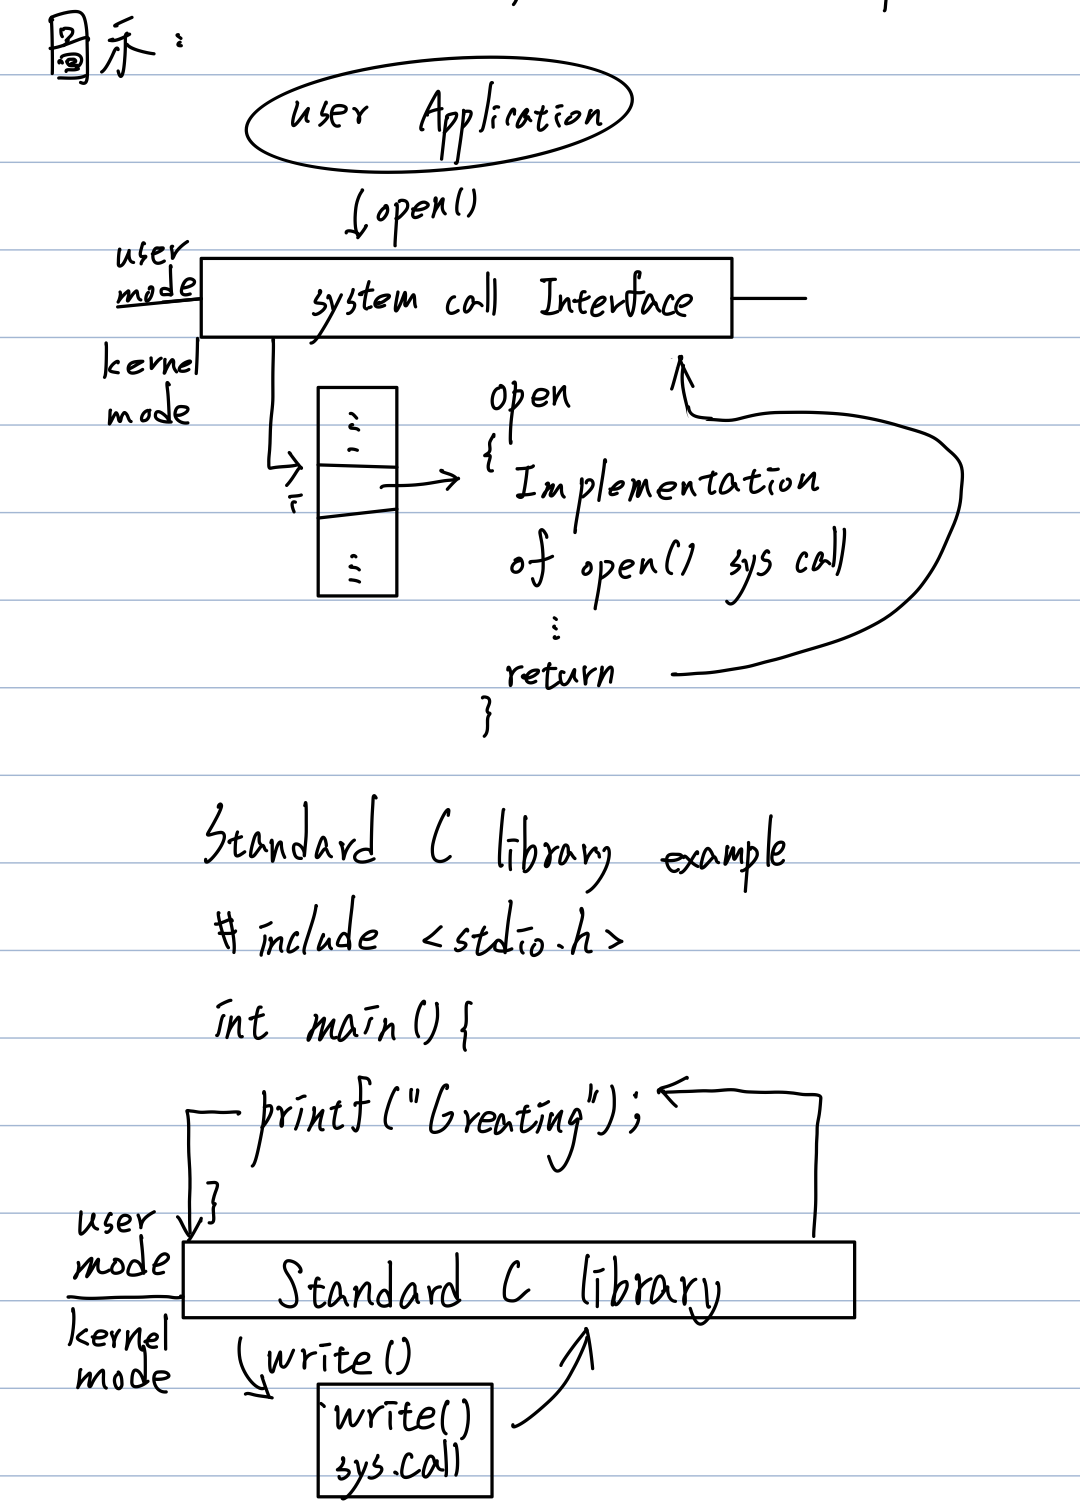 圖示：
user Application
open()
user
mode
system call Interface
kernel
mode
open
{
i
Implementation
of open() sys call
⋮
return
}
Standard C library example
# include <stdio.h>
int main () {
printf("Greating");
}
user
mode
Standard C library
kernel
mode
write()
write()
sys.call